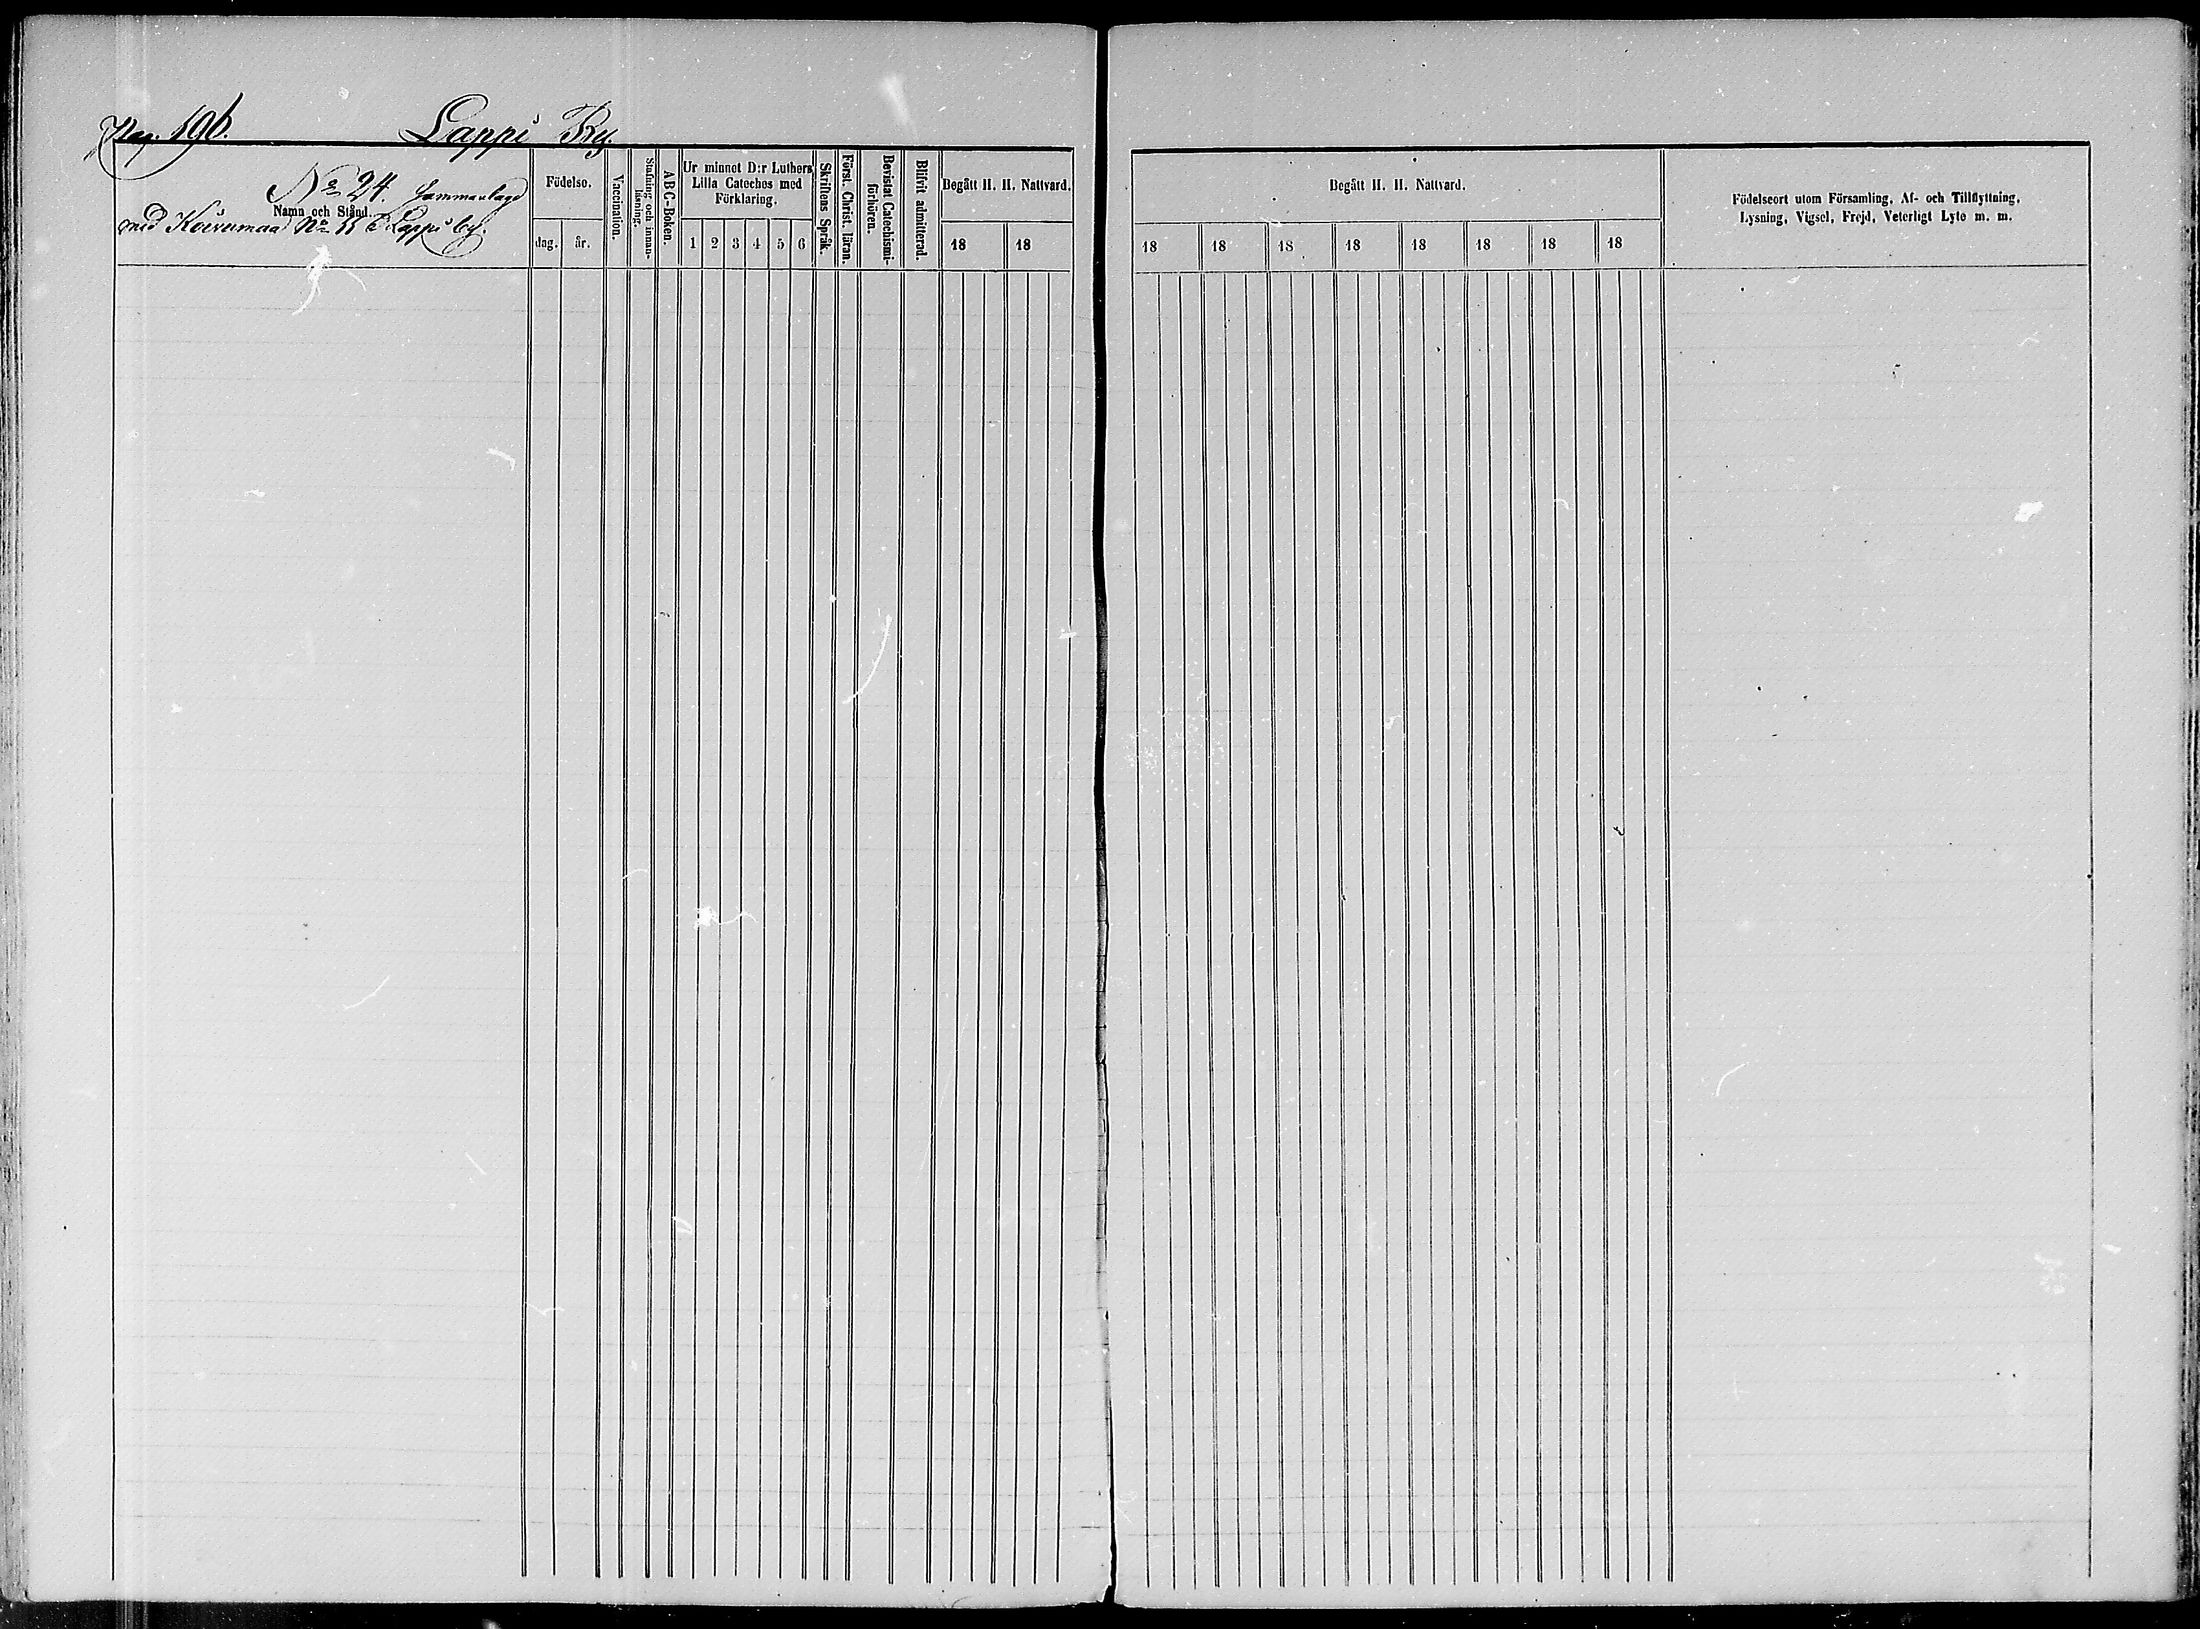 Pag. 196.
Lappi By.
No 24. Sammanlagd
Namn och Stånd.
med Koivumaa No 11 i Lappi by.
Födelse.
dag.
år.
Vaccination.
Stafning och innan-
läsning.
ABC-Boken.
Ur minnet D:r Luthers
Lilla Cateches med
Förklaring.
1 2 3 4 5 6
Skriftens Språk.
Först. Christ. läran.
Bevistat Catechismi-
förhören.
Blifvit admitterad.
Begått H. H. Nattvard.
18 18
Begått H. H. Nattvard.
18 18 18 18 18 18 18 18
Födelseort utom Församling, Af- och Tillflyttning,
Lysning, Vigsel, Frejd, Veterligt Lyte m. m.